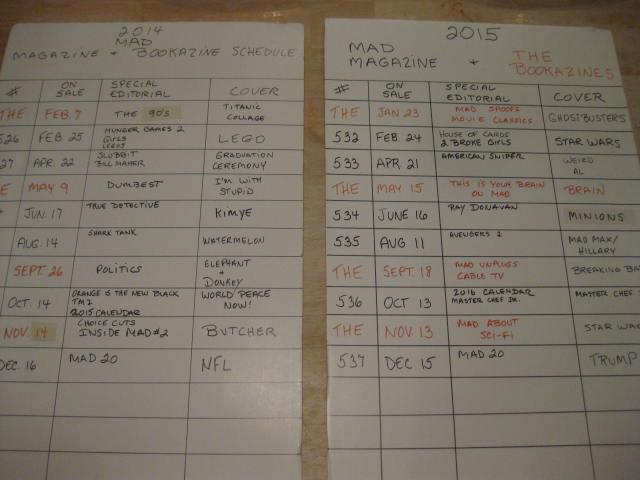 2014
MAD
MAGAZINE + BOOKAZINE SCHEDULE
# ON SALE SPECIAL EDITORIAL COVER
THE FEB 7 THE 90's TITANIC COLLAGE
526 FEB 25 HUNGER GAMES 2 GIRLS LEGOS LEGO
27 APR. 22 SLOBBIT BILL MAHER GRADUATION CEREMONY
E MAY 9 DUMBEST I'M WITH STUPID
JUN. 17 TRUE DETECTIVE KIMYE
AUG. 14 SHARK TANK WATERMELON
SEPT. 26 POLITICS ELEPHANT + DONKEY
OCT. 14 ORANGE IS THE NEW BLACK TM2 2015 CALENDAR WORLD PEACE NOW!
NOV. 14 CHOICE CUTS INSIDE MAD #2 BUTCHER
DEC. 16 MAD 20 NFL
2015
MAD
MAGAZINE + THE
BOOKAZINES
# ON SALE SPECIAL EDITORIAL COVER
THE JAN 23 MAD SPOOFS MOVIE CLASSICS GHOSTBUSTERS
532 FEB. 24 HOUSE OF CARDS 2 BROKE GIRLS STAR WARS
533 APR. 21 AMERICAN SNIPER WEIRD AL
THE MAY 15 THIS IS YOUR BRAIN ON MAD BRAIN
534 JUNE 16 RAY DONAVAN MINIONS
535 AUG 11 AVENGERS 2 MAD MAX/ HILLARY
THE SEPT. 18 MAD UNPLUGS CABLE TV BREAKING BA
536 OCT 13 2016 CALENDAR MASTER CHEF JR. MASTER CHEF
THE NOV. 13 MAD ABOUT SCI-FI STAR WA
537 DEC 15 MAD 20 TRUMP